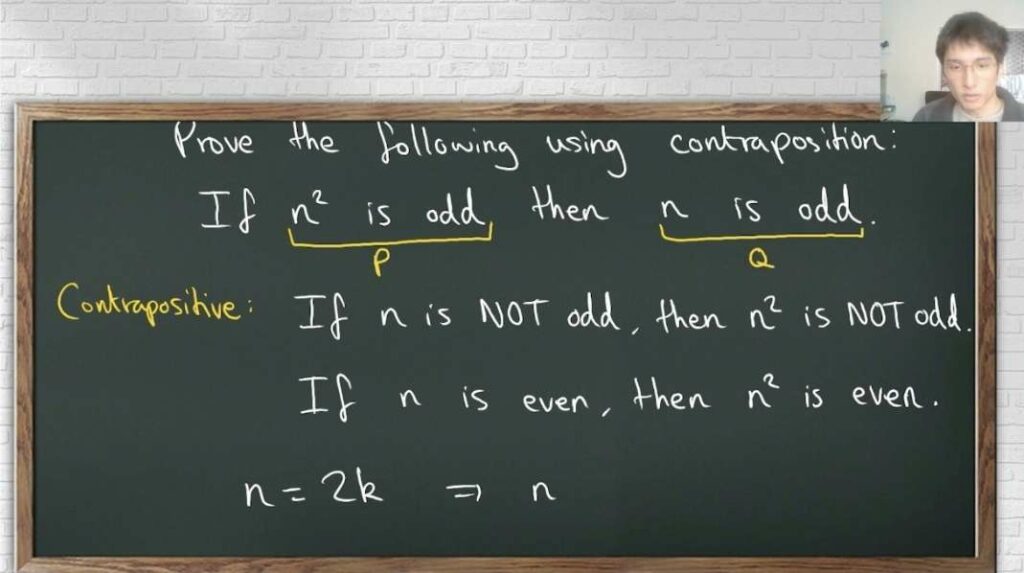 Prove the following using contraposition:
If n² is odd then n is odd.
P Q
Contrapositive: If n is NOT odd, then n² is NOT odd.
If n is even, then n² is even.
n = 2k ⇒ n